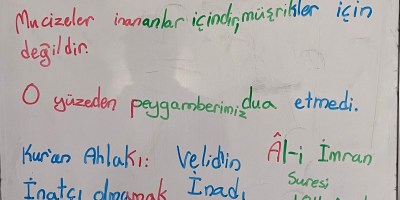 Mucizeler inananlar içindir, müşrikler için
değildir.
O yüzeden peygamberimiz dua etmedi.
Kur'an Ahlakı: Velid'in Âl-i İmran
İnatçı olmamak İnadı Suresi